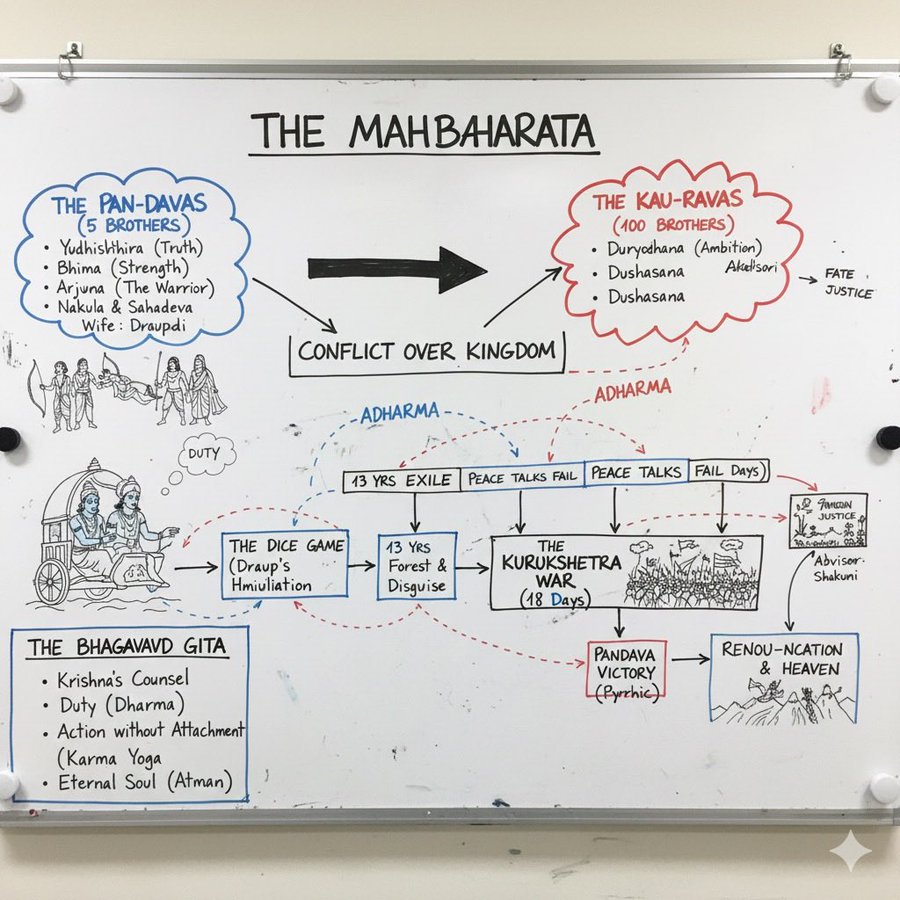 THE MAHBAHARATA
THE PAN-DAVAS
(5 BROTHERS)
• Yudhishthira (Truth)
• Bhima (Strength)
• Arjuna (The Warrior)
• Nakula & Sahadeva
Wife : Draupdi
THE KAU-RAVAS
(100 BROTHERS)
• Duryodhana (Ambition)
• Dushasana
• Dushasana
FATE
JUSTICE
CONFLICT OVER KINGDOM
ADHARMA
ADHARMA
DUTY
13 YRS EXILE
PEACE TALKS FAIL
PEACE TALKS
FAIL Days)
JUSTICE
Shakuni
THE DICE GAME
(Draup's
Hmiuliation
13 YRS
Forest &
Disguise
THE
KURUKSHETRA
WAR
(18 Days)
PANDAVA
VICTORY
(Pyrrhic)
RENOU-NCATION
& HEAVEN
THE BHAGAVAVD GITA
• Krishna's Counsel
• Duty (Dharma)
• Action without Attachment
(Karma Yoga
• Eternal Soul (Atman)